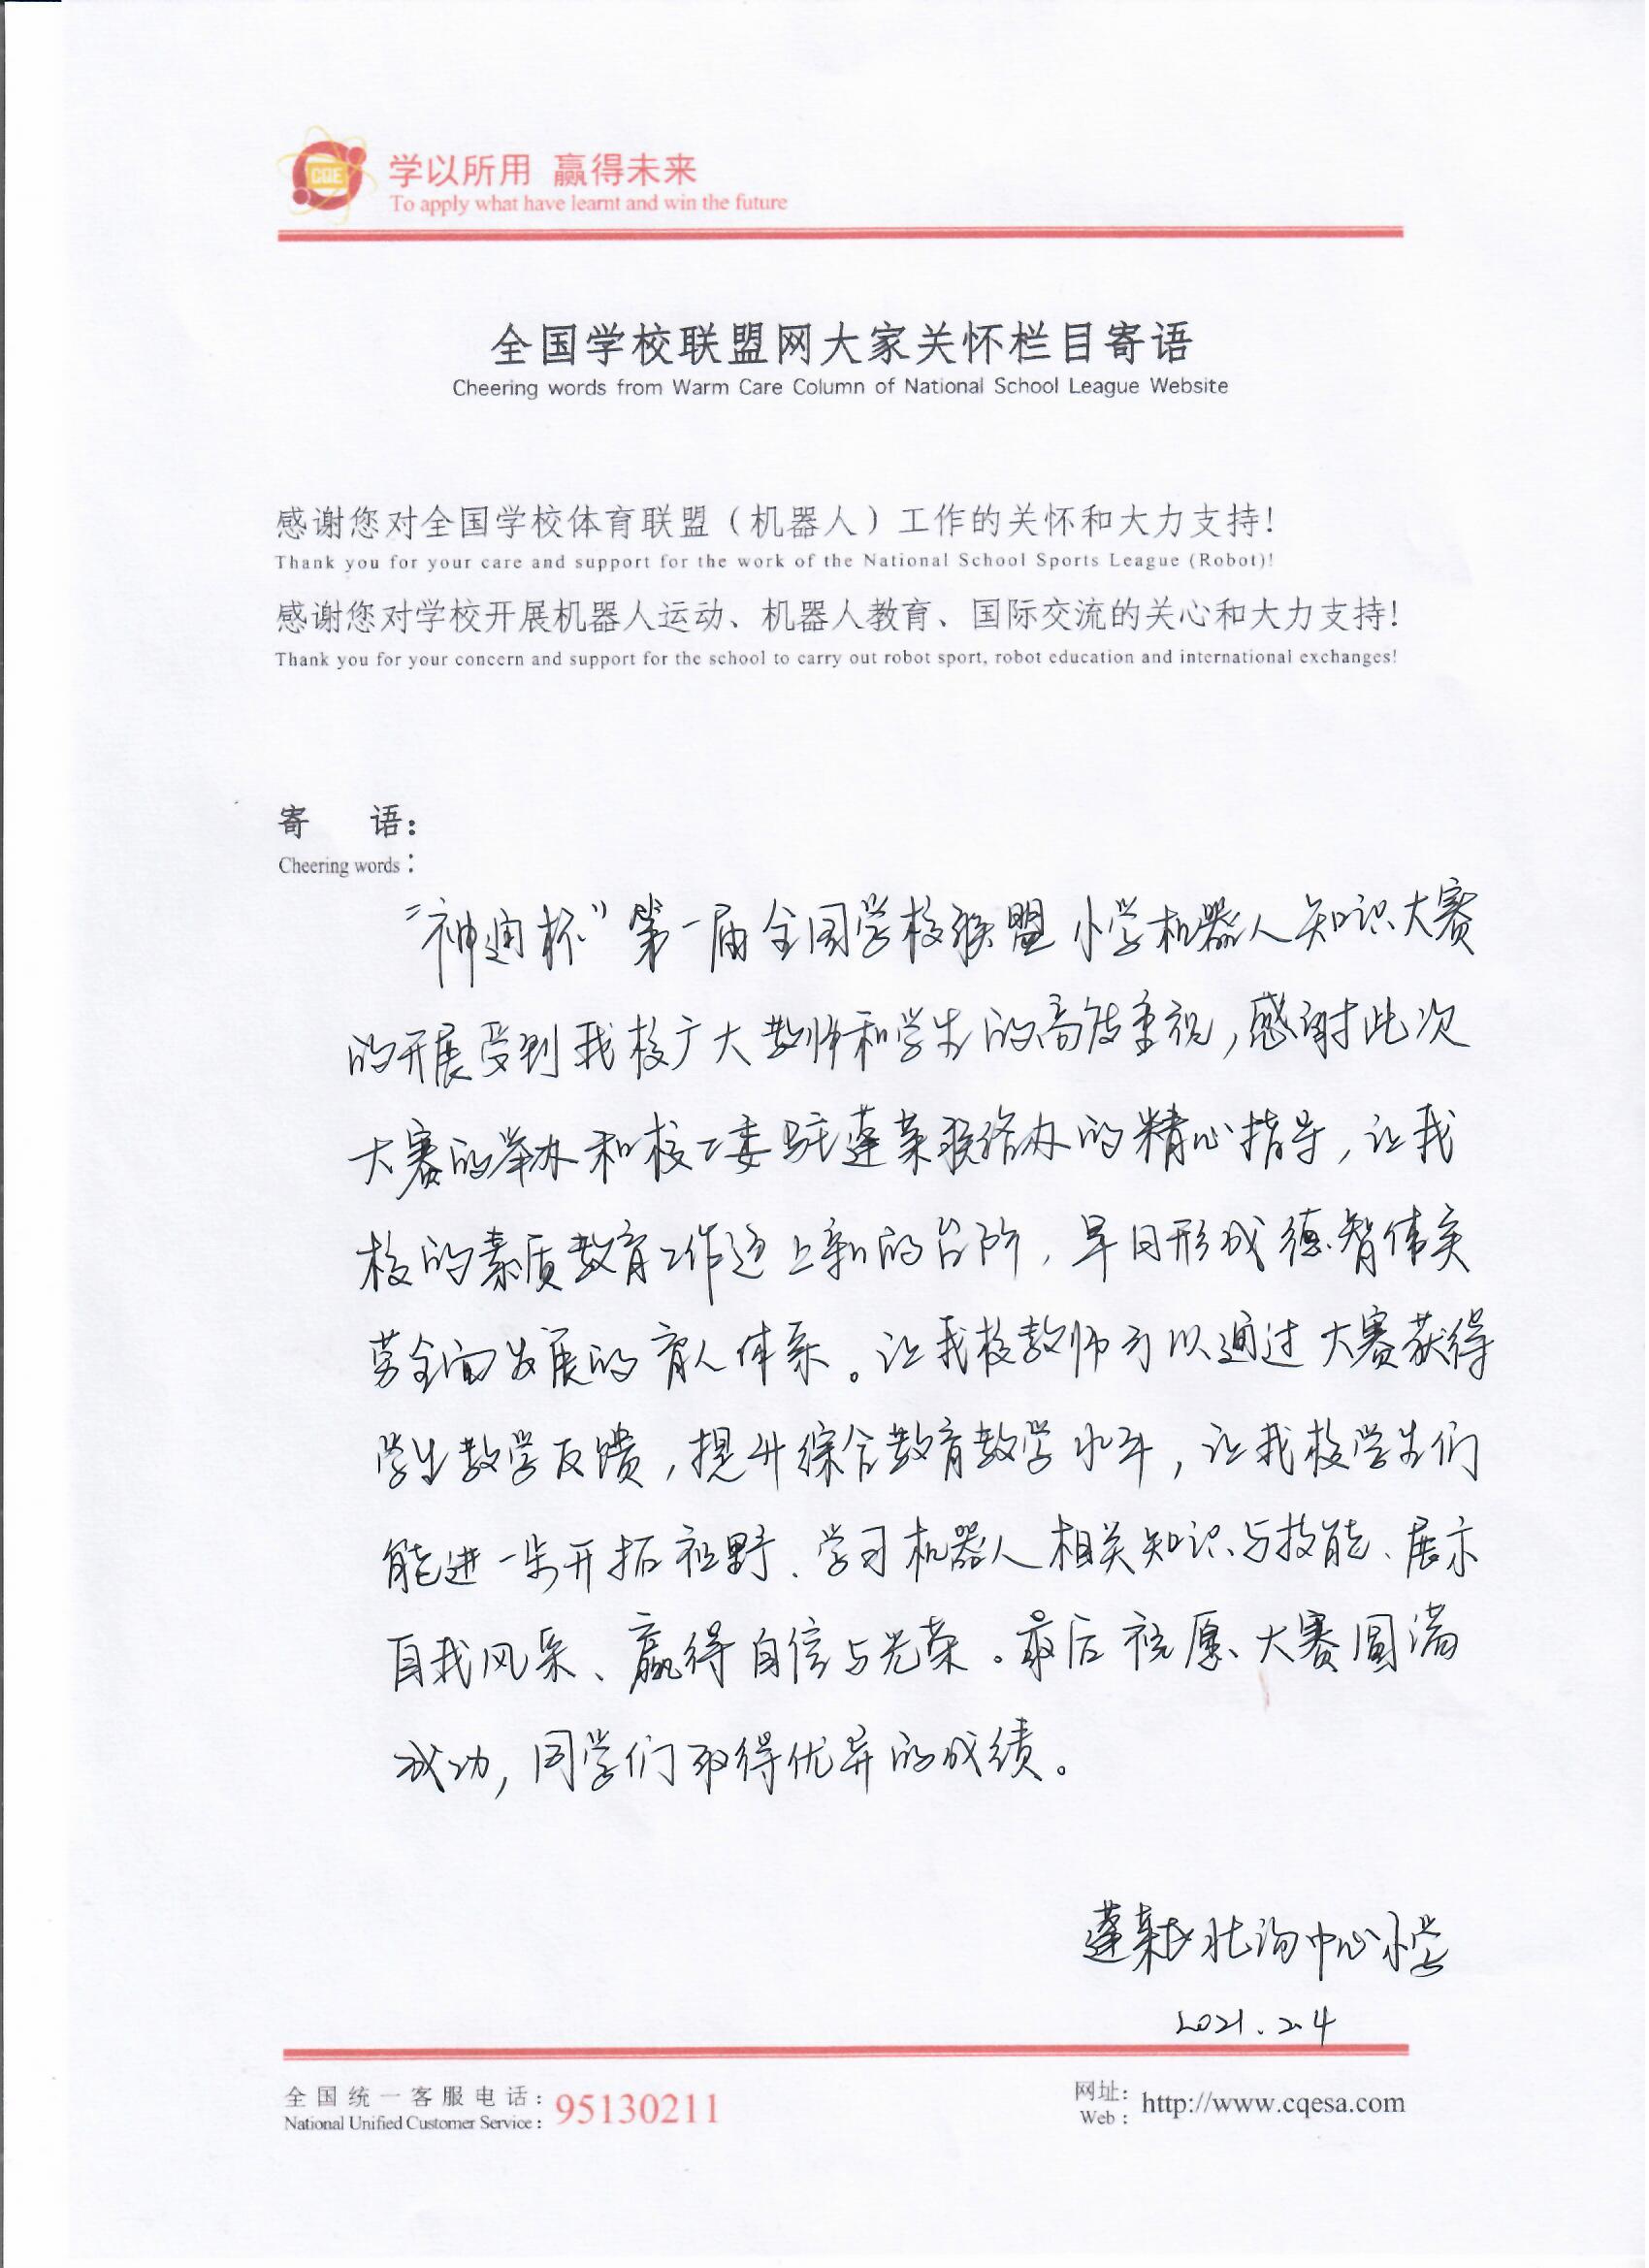 CQE
学以所用 赢得未来
To apply what have learnt and win the future
全国学校联盟网大家关怀栏目寄语
Cheering words from Warm Care Column of National School League Website
感谢您对全国学校体育联盟（机器人）工作的关怀和大力支持！
Thank you for your care and support for the work of the National School Sports League (Robot)!
感谢您对学校开展机器人运动、机器人教育、国际交流的关心和大力支持！
Thank you for your concern and support for the school to carry out robot sport, robot education and international exchanges!
寄 语：
Cheering words：
“神通杯”第一届全国学校联盟小学机器人知识大赛
的开展受到我校广大教师和学生的高度重视，感谢此次
大赛的举办和校工委驻蓬莱联络办的精心指导，让我
校的素质教育工作迈上新的台阶，早日形成德智体美
劳全面发展的育人体系。让我校教师可以通过大赛获得
学生教学反馈，提升综合教育教学水平，让我校学生们
能进一步开拓视野、学习机器人相关知识与技能、展示
自我风采、赢得自信与光荣。最后祝愿大赛圆满
成功，同学们取得优异的成绩。
蓬莱北沟中心小学
2021.2.4
全国统一客服电话：95130211
National Unified Customer Service：
网址：http://www.cqesa.com
Web：